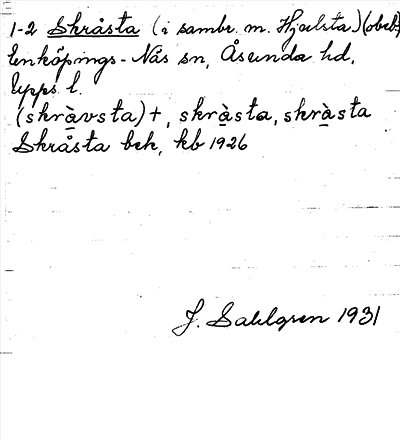 1-2 Skråsta (i sambr. m. Hjälsta) (obeb.)
Enköpings-Näs sn, Åsunda hd,
Upps. l.
(skràvsta)+, skràsta, skràsta
Skråsta beh, kb 1926
J. Sahlgren 1931